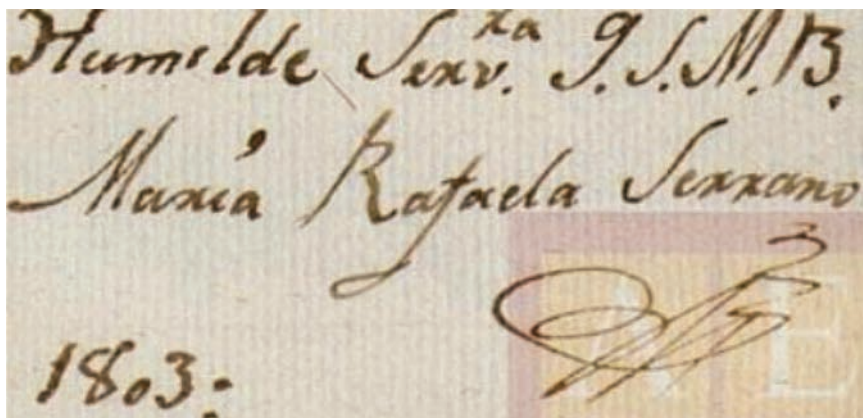 Humilde Serv.ra Q.S.M.B.
María Rafaela Serrano
1803: